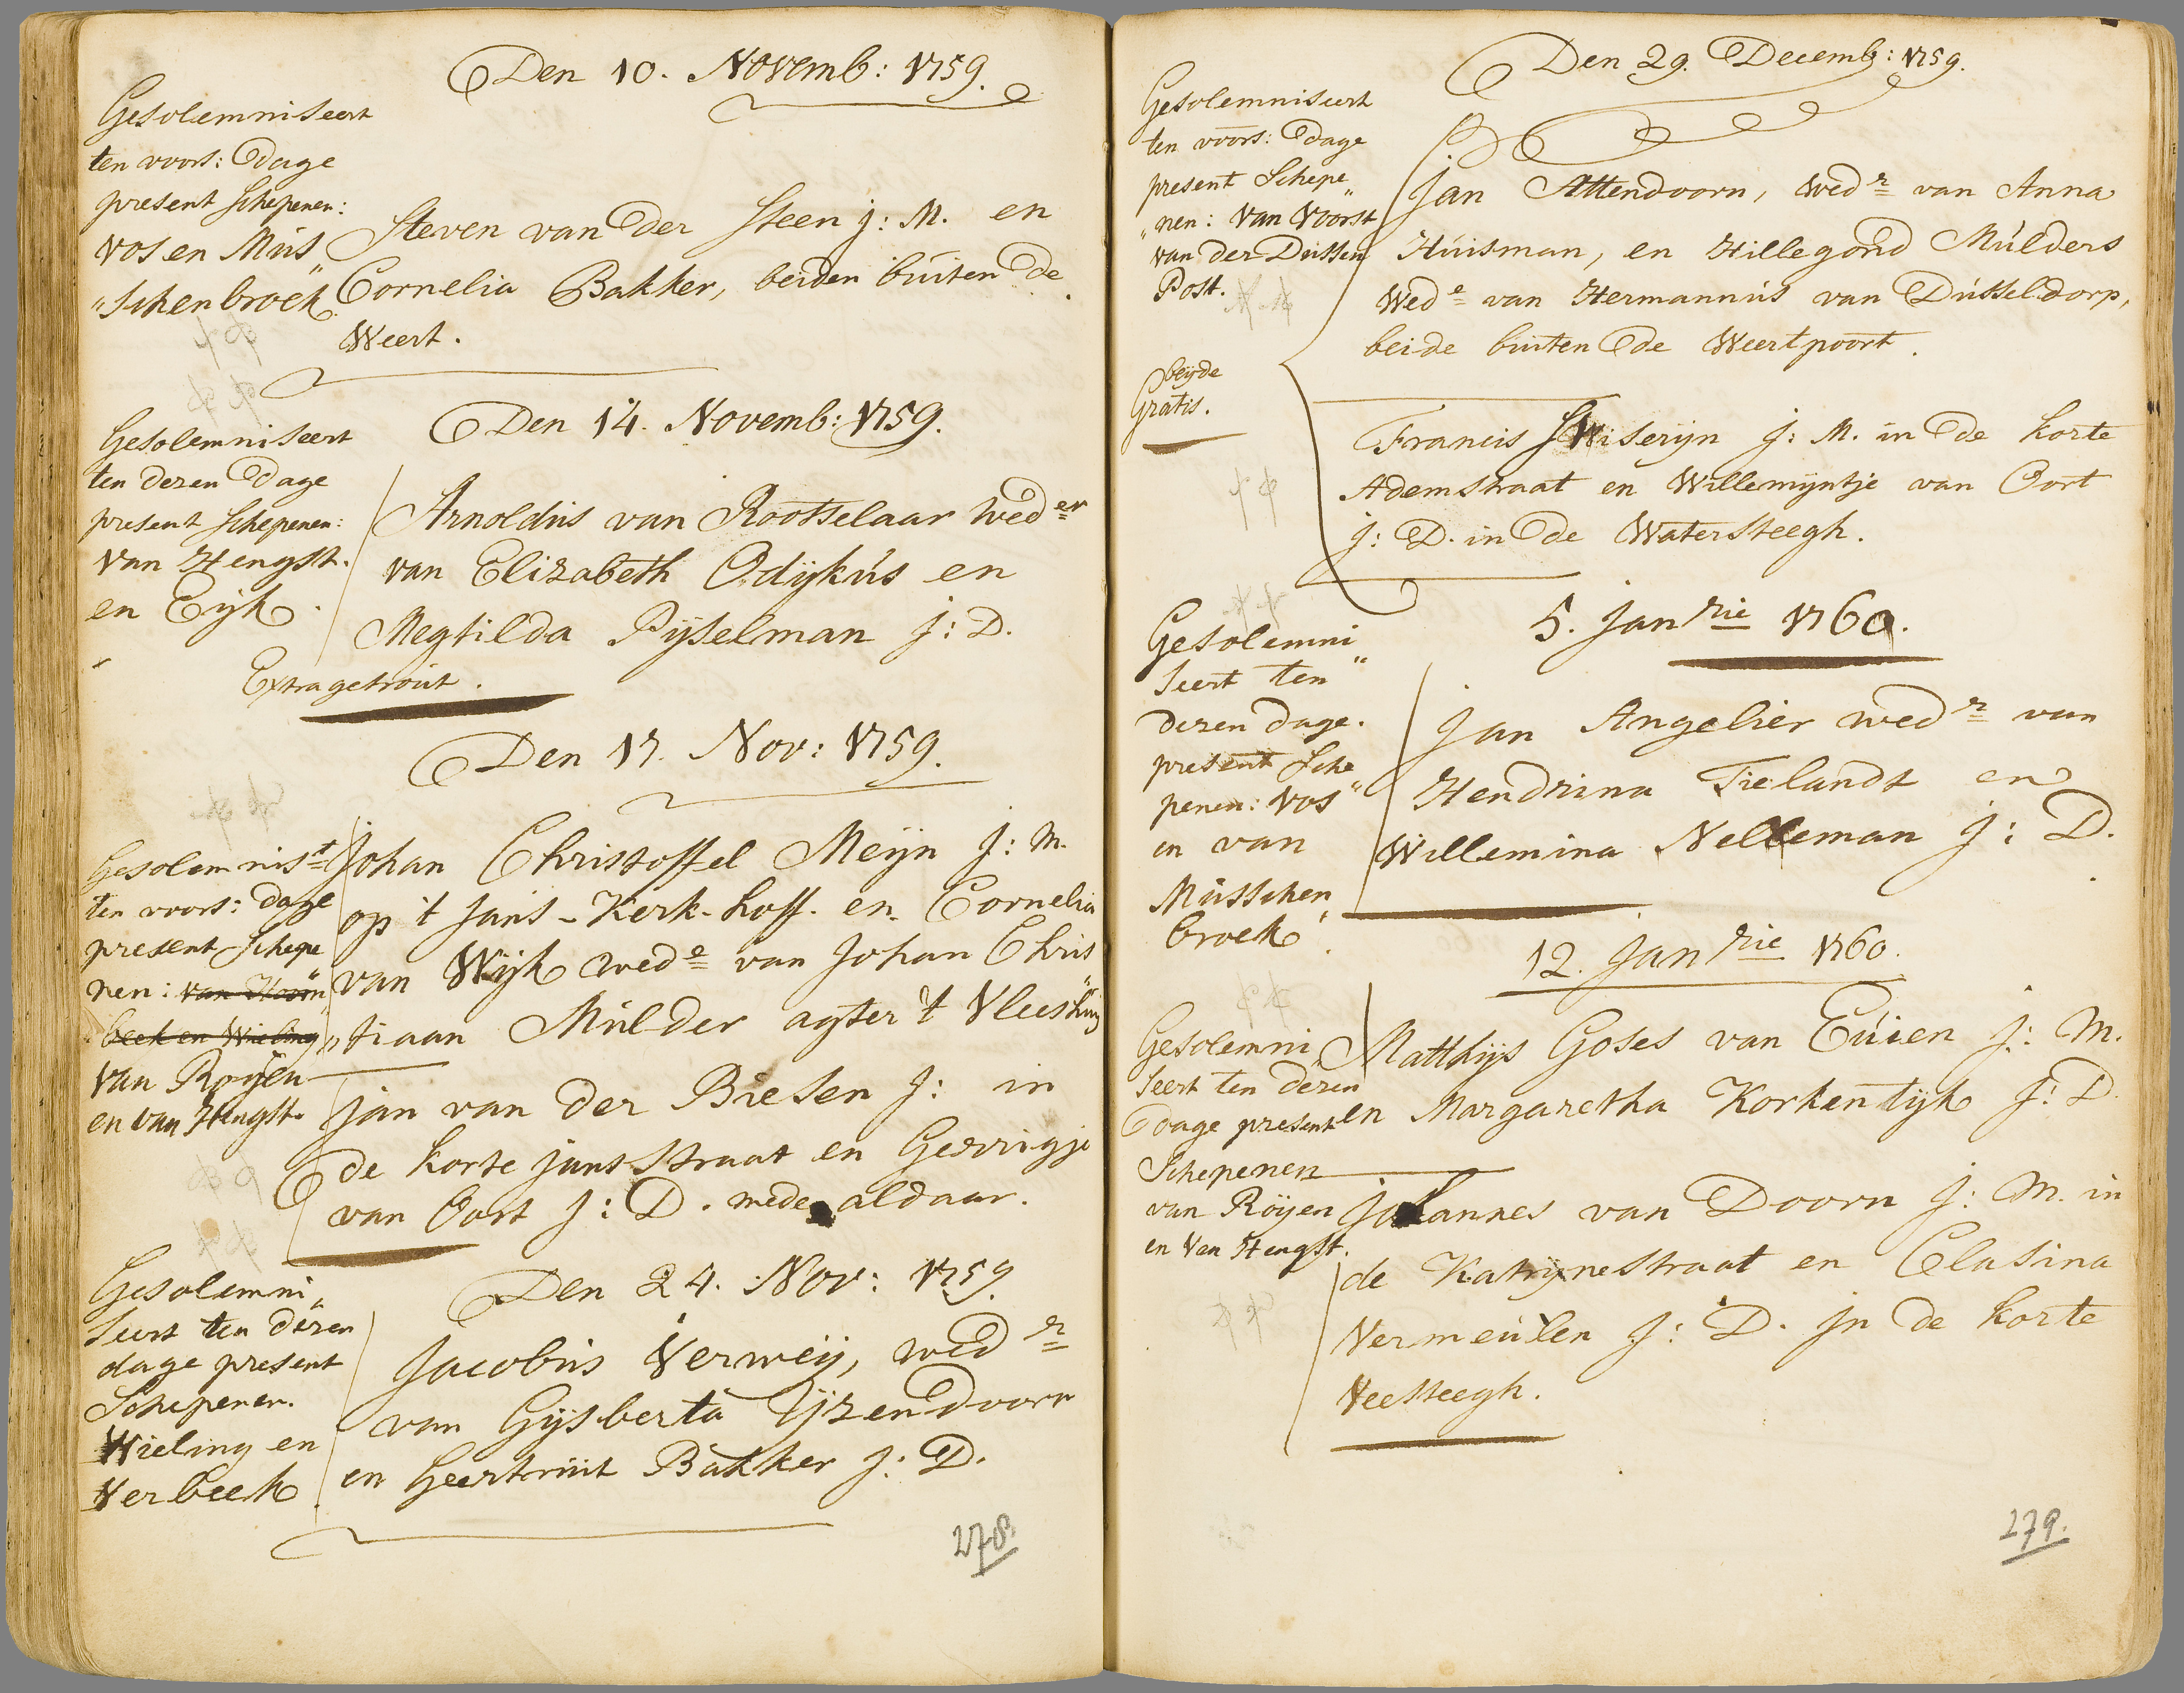 Den 10. Novemb: 1759.
Gesolemniseert
ten voors: Dage
present Schepenen:
Vos en Mus
"schenbroek
Steven van Der Steen j: M. en
Cornelia Bakker, beiden buiten De
Weert.
Den 14. Novemb: 1759.
Gesolemniseert
ten dezen Dage
present Schepenen:
Van Hengst.
en Eyk
Arnoldus van Rootselaar Weder
van Elizabeth Odijkus en
Megtilda Pijselman j: D.
Extra getrout.
Den 17. Nov: 1759.
Gesolemnist
ten voors: Dage
present Schepe
nen: van
beek en Wieling
Van Royen
en van Hengst.
Johan Christoffel Meijn J: M.
op 't Jans-Kerk-hoff. en Cornelia
van Wijk wede van Johan Chris
"tiaan Mulder agter 't Vleeshuis
Jan van Der Biesen J: in
de korte jansstraat en Gerrigje
van Oort J: D. mede aldaar.
Den 24. Nov: 1759.
Gesolemni"
seert ten dezen
dage present
Schepenen.
Wieling en
Verbeek
Jacobus Verweij, wedr
van Gijsberta Ijzendoorn
en Geertruit Bakker J: D.
278.
Den 29. Decemb: 1759.
Gesolemniseert
ten voors: Dage
present Schepe"
"nen: Van Voorst
van der Dussen
Post.
Jan Attendoorn, wedr van Anna
Huisman, en Hillegond Mulders
Wede van Hermannus van Dusseldorp,
beide buiten De Weertpoort.
beijde
Gratis.
Francis J: M. in De korte
Ademstraat en Willemijntje van Oort
J: D. in De Watersteegh.
5. Janrie 1760.
Gesolemni"
seert ten
dezen dage.
present Sche"
penen: Vos
en van
Musschen
broek
Jan Angelier wedr van
Hendrina Tielandt en
Willemina Nelleman J: D.
12. Janrie 1760.
Gesolemni
seert ten dezen
Dage present
Schepenen
van Röyen
en Van Hengst.
Matthijs Goses van Euien J: M.
en Margaretha Korkentijk J: D.
Johannes van Doorn J: M. in
de Katrijnestraat en Clasina
Vermeulen J: D. Jn de korte
Veesteegh.
279.